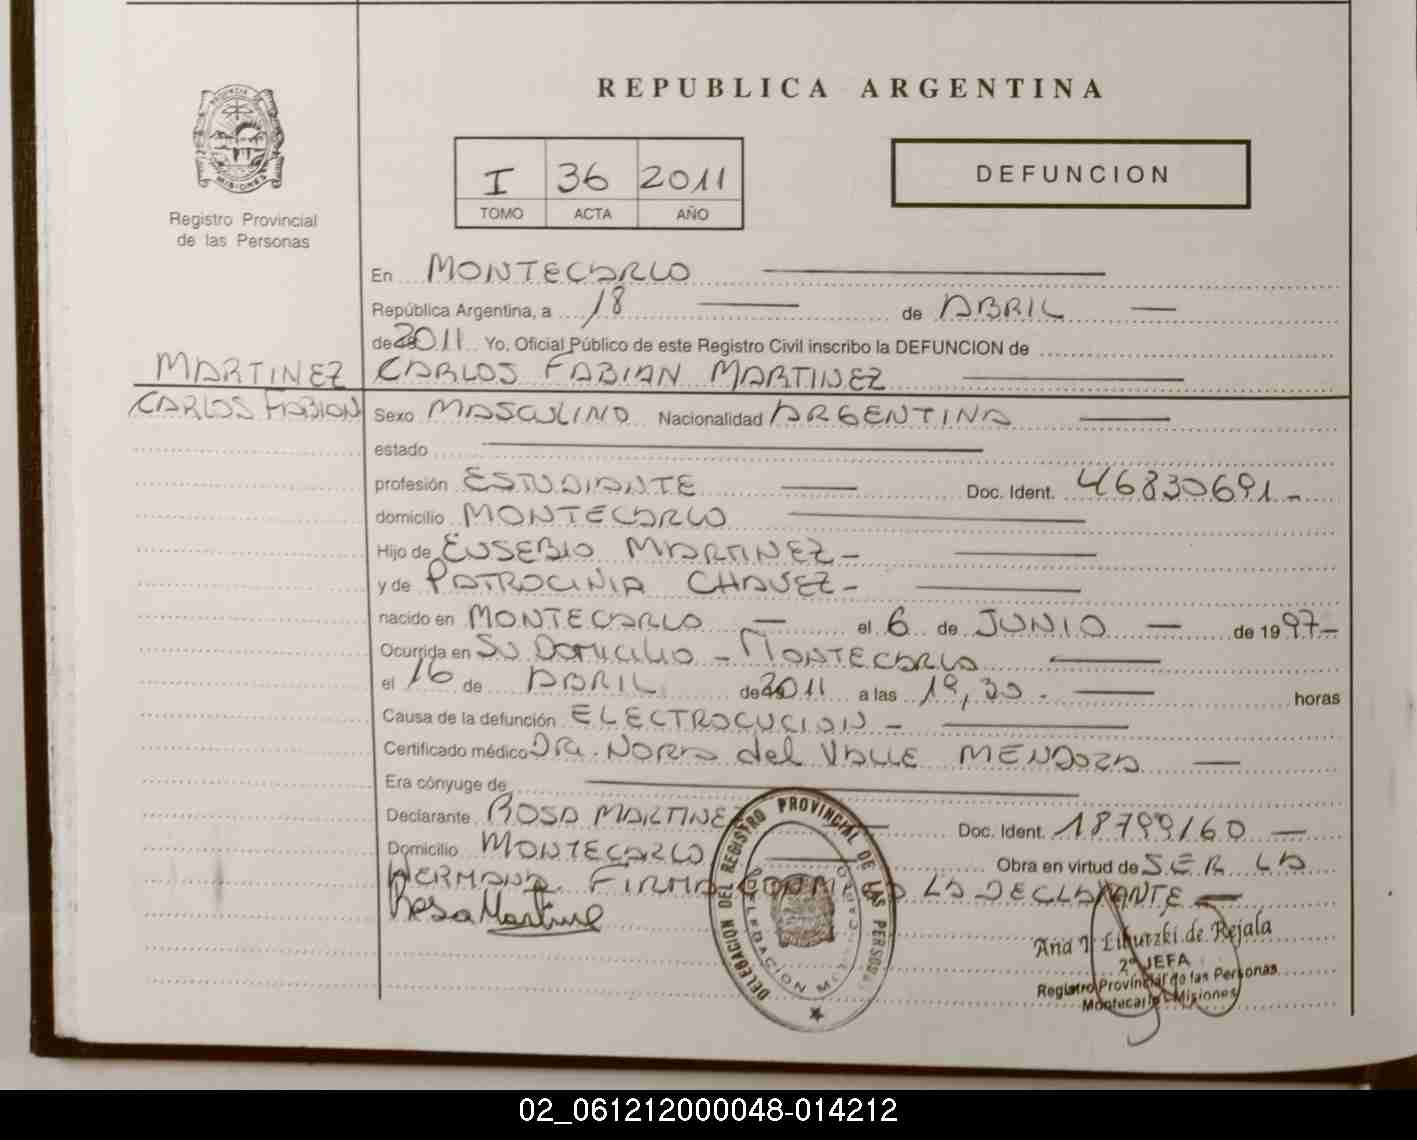 REPUBLICA ARGENTINA
PROVINCIA DE MISIONES
Registro Provincial
de las Personas
I 36 2011
TOMO ACTA AÑO
DEFUNCION
En MONTECARLO
República Argentina, a 18 de ABRIL
de 2011 Yo, Oficial Público de este Registro Civil inscribo la DEFUNCION de
MARTINEZ
CARLOS FABIAN
CARLOS FABIAN MARTINEZ
Sexo MASCULINO Nacionalidad ARGENTINA
estado
profesión ESTUDIANTE Doc. Ident. 46830691.-
domicilio MONTECARLO
Hijo de EUSEBIO MARTINEZ-
y de PATROCINIA CHAVEZ-
nacido en MONTECARLO - el 6 de JUNIO - de 1997-
Ocurrida en SU DOMICILIO - MONTECARLO
el 16 de ABRIL de 2011 a las 19,30.- horas
Causa de la defunción ELECTROCUCION -
Certificado médico Dra. NORA del VALLE MENDOZA
Era cónyuge de
Declarante ROSA MARTINEZ Doc. Ident. 18799160
Domicilio MONTECARLO Obra en virtud de SER LA
HERMANA. FIRMA CONMIGO LA DECLARANTE
Rosa Martinez
DELEGACION DEL REGISTRO PROVINCIAL DE LAS PERSONAS
DELEGACION
Ana Liburzki de Rejala
2º JEFA
Registro Provincial de las Personas
Montecarlo - Misiones
02_061212000048-014212